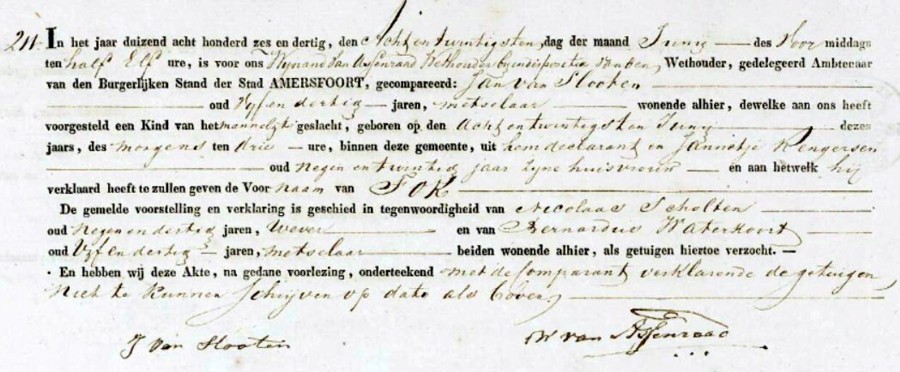 211. In het jaar duizend acht honderd zes en dertig, den Acht en twintigsten dag der maand Junij des Voor middags
ten half Elf ure, is voor ons Wijnand van Assenraad Wethouder Wethouder, gedelegeerd Ambtenaar
van den Burgerlijken Stand der Stad AMERSFOORT, gecompareerd: Jan van Slooten
oud Vyf en dertig jaren, metselaar wonende alhier, dewelke aan ons heeft
voorgesteld een Kind van het mannelyk geslacht, geboren op den acht en twintigsten Junij dezes
jaars, des morgens ten drie ure, binnen deze gemeente, uit hem declarant en Jannetje Rengersen
oud negen en twintig jaar zyne huisvrouw en aan hetwelk hij
verklaard heeft te zullen geven de Voor naam van FOK
De gemelde voorstelling en verklaring is geschied in tegenwoordigheid van Nicolaas Scholten
oud negen en dertig jaren, Wever en van Bernardus Waterkoort
oud Vyf en dertig jaren, metselaar beiden wonende alhier, als getuigen hiertoe verzocht.
En hebben wij deze Akte, na gedane voorlezing, onderteekend met de Comparant verklarende de getuigen
niet te kunnen Schrijven op dato als boven
J van Slooten W van Assenraad